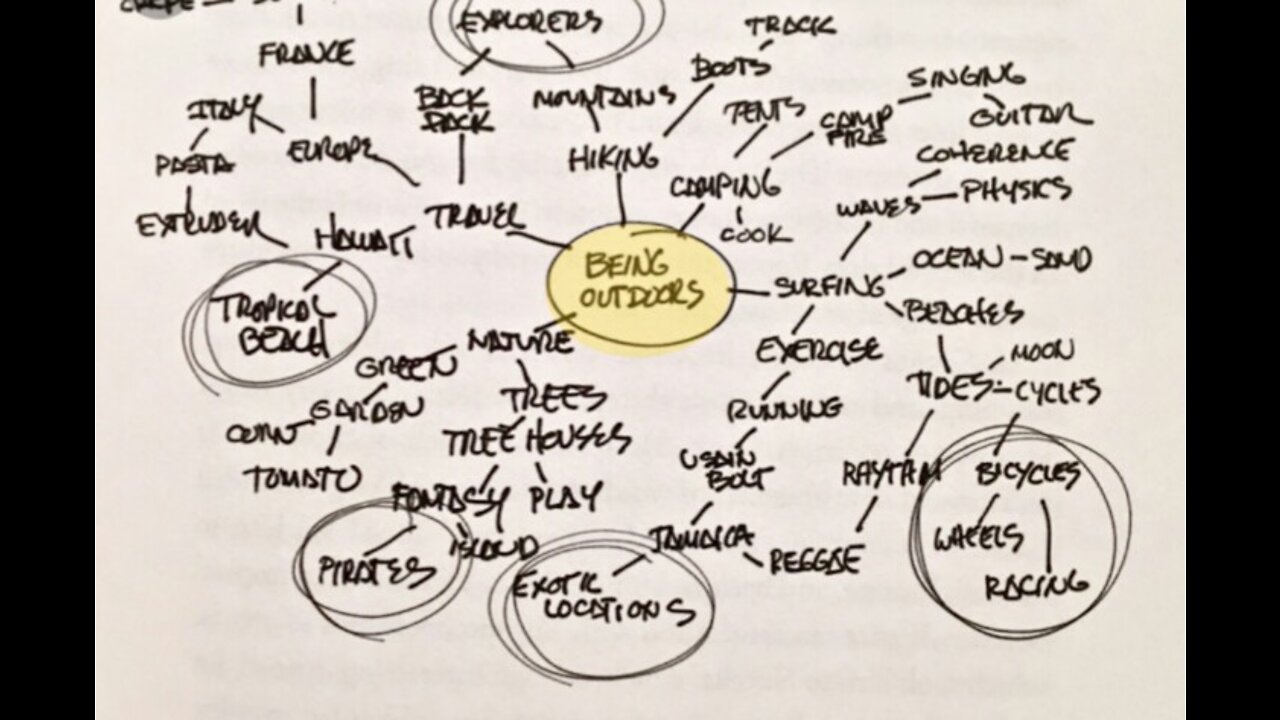 CREPE
EXPLORERS
TRACK
FRANCE
BOOTS
SINGING
ITALY
BACK
PACK
MOUNTAINS
TENTS
CAMP
FIRE
GUITAR
PASTA
EUROPE
HIKING
COHERENCE
CAMPING
PHYSICS
EXTRUDER
TRAVEL
WAVES
HAWAII
COOK
BEING
OUTDOORS
OCEAN - SAND
SURFING
TROPICAL
BEACH
BEACHES
NATURE
EXERCISE
MOON
GREEN
TIDES - CYCLES
TREES
GARDEN
RUNNING
CORN
TREE HOUSES
TOMATO
USAIN
BOLT
RHYTHM
BICYCLES
FANTASY
PLAY
ISLAND
JAMAICA
WHEELS
PIRATES
REGGAE
EXOTIC
LOCATIONS
RACING